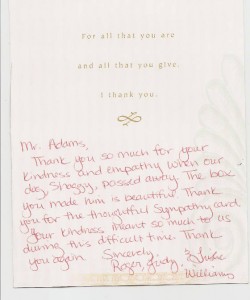 For all that you are
and all that you give,
I thank you.
Mr. Adams,
Thank you so much for your
kindness and empathy when our
dog, Shaggy, passed away. The box
you made him is beautiful. Thank
you for the thoughtful sympathy card.
Your kindness meant so much to us
during this difficult time. Thank
you again. Sincerely,
Roger, Judy & Julie
Williams